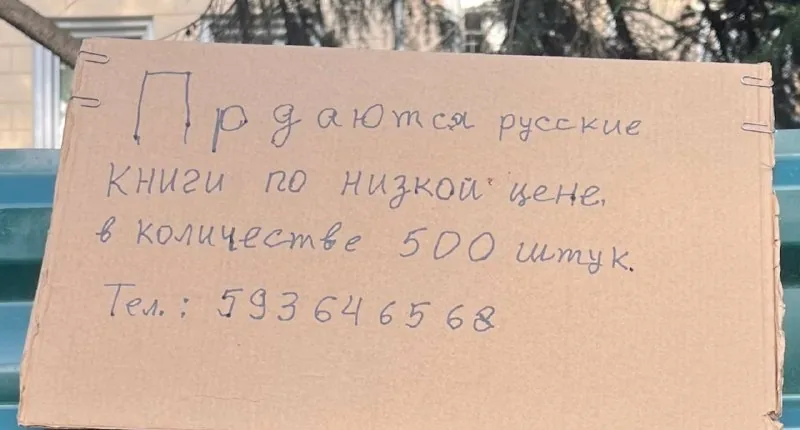 Прдаются русские
книги по низкой цене.
в количестве 500 штук.
Тел.: 593646568